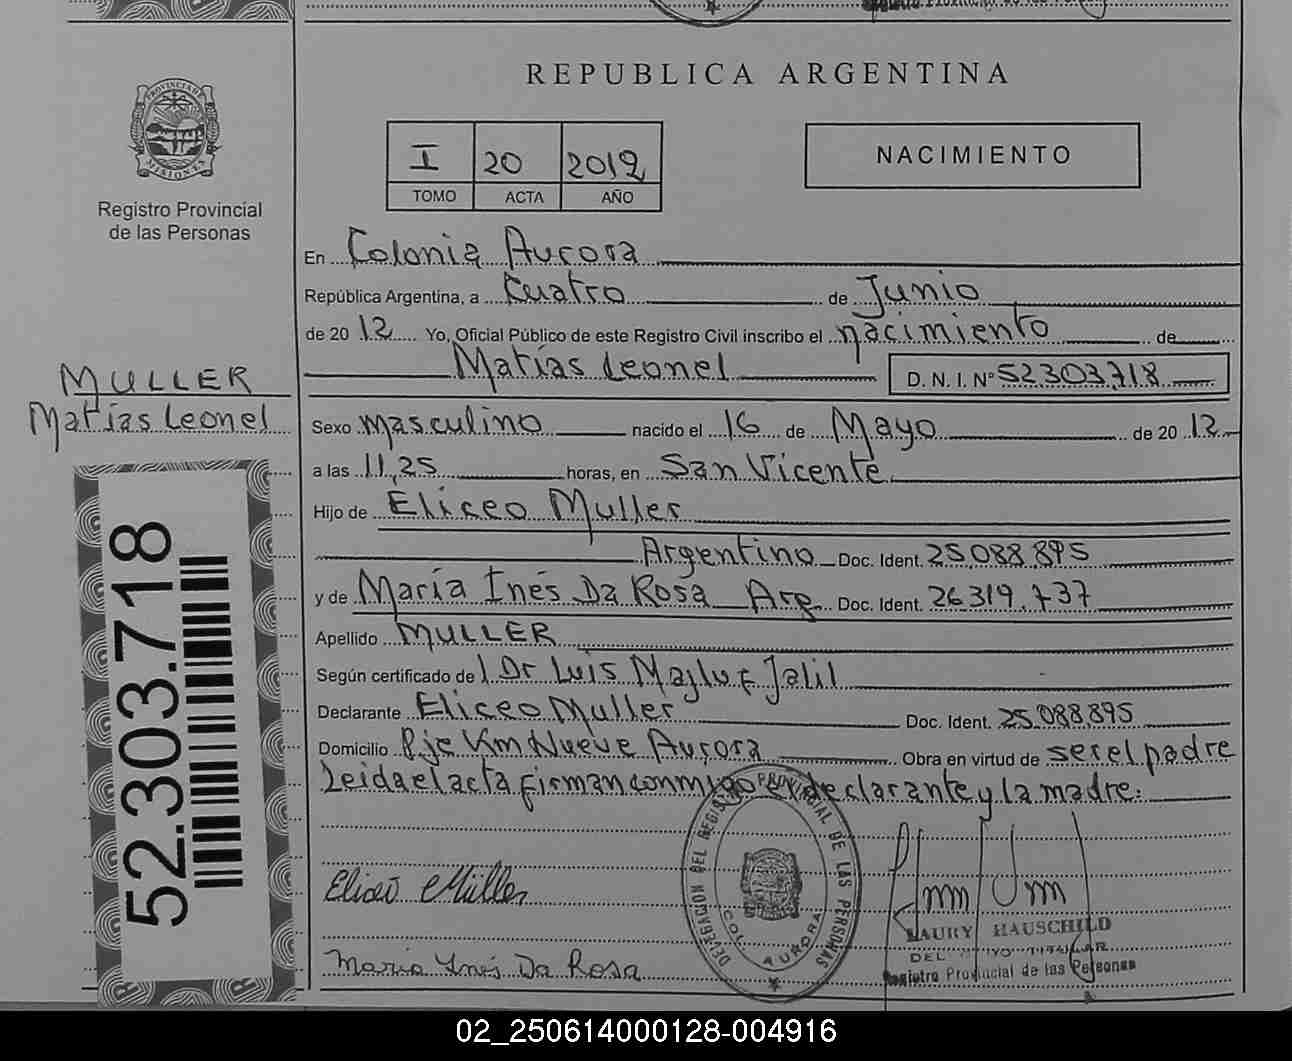 REPUBLICA ARGENTINA
PROVINCIA DE MISIONES
Registro Provincial
de las Personas
I 20 2012
TOMO ACTA AÑO
NACIMIENTO
En Colonia Aurora
República Argentina, a Cuatro de Junio
de 2012 Yo, Oficial Público de este Registro Civil inscribo el nacimiento de
Matías Leonel D. N. I. Nº 52303718
MULLER
Matías Leonel
Sexo masculino nacido el 16 de Mayo de 2012
a las 11,25 horas, en San Vicente
Hijo de Eliceo Muller
Argentino Doc. Ident. 25.088.895
y de María Inés Da Rosa Arg. Doc. Ident. 26.319.737
Apellido MULLER
Según certificado de l Dr Luis Majluf Jalil
Declarante Eliceo Muller Doc. Ident. 25.088.895
Domicilio Pje Km Nueve Aurora Obra en virtud de ser el padre
Leida el acta firman conmigo el declarante y la madre.
52.303.718
Eliceo Müller
María Inés Da Rosa
DELEGACION DEL REGISTRO PROVINCIAL DE LAS PERSONAS
COL. AURORA
LAURY HAUSCHILD
Registro Provincial de las Personas
02_250614000128-004916